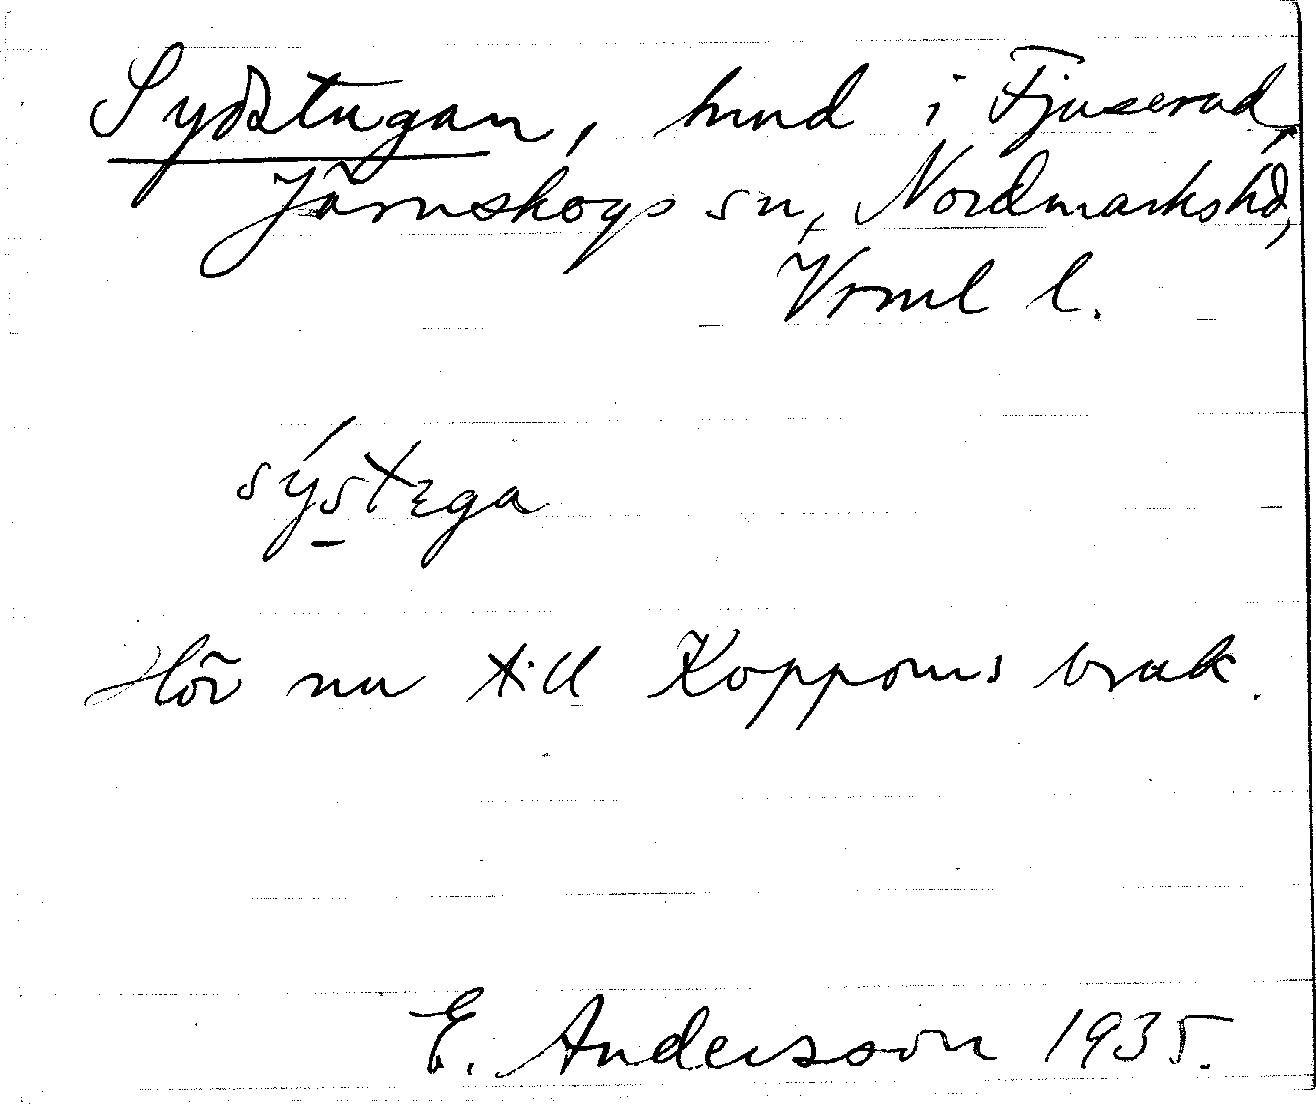 Sydstugan, hmd i Fjuserud,
Järnskogs sn, Nordmarks hd,
Vrml l.
sýstɛga
Hör nu till Koppoms bruk.
E. Andersson 1935.